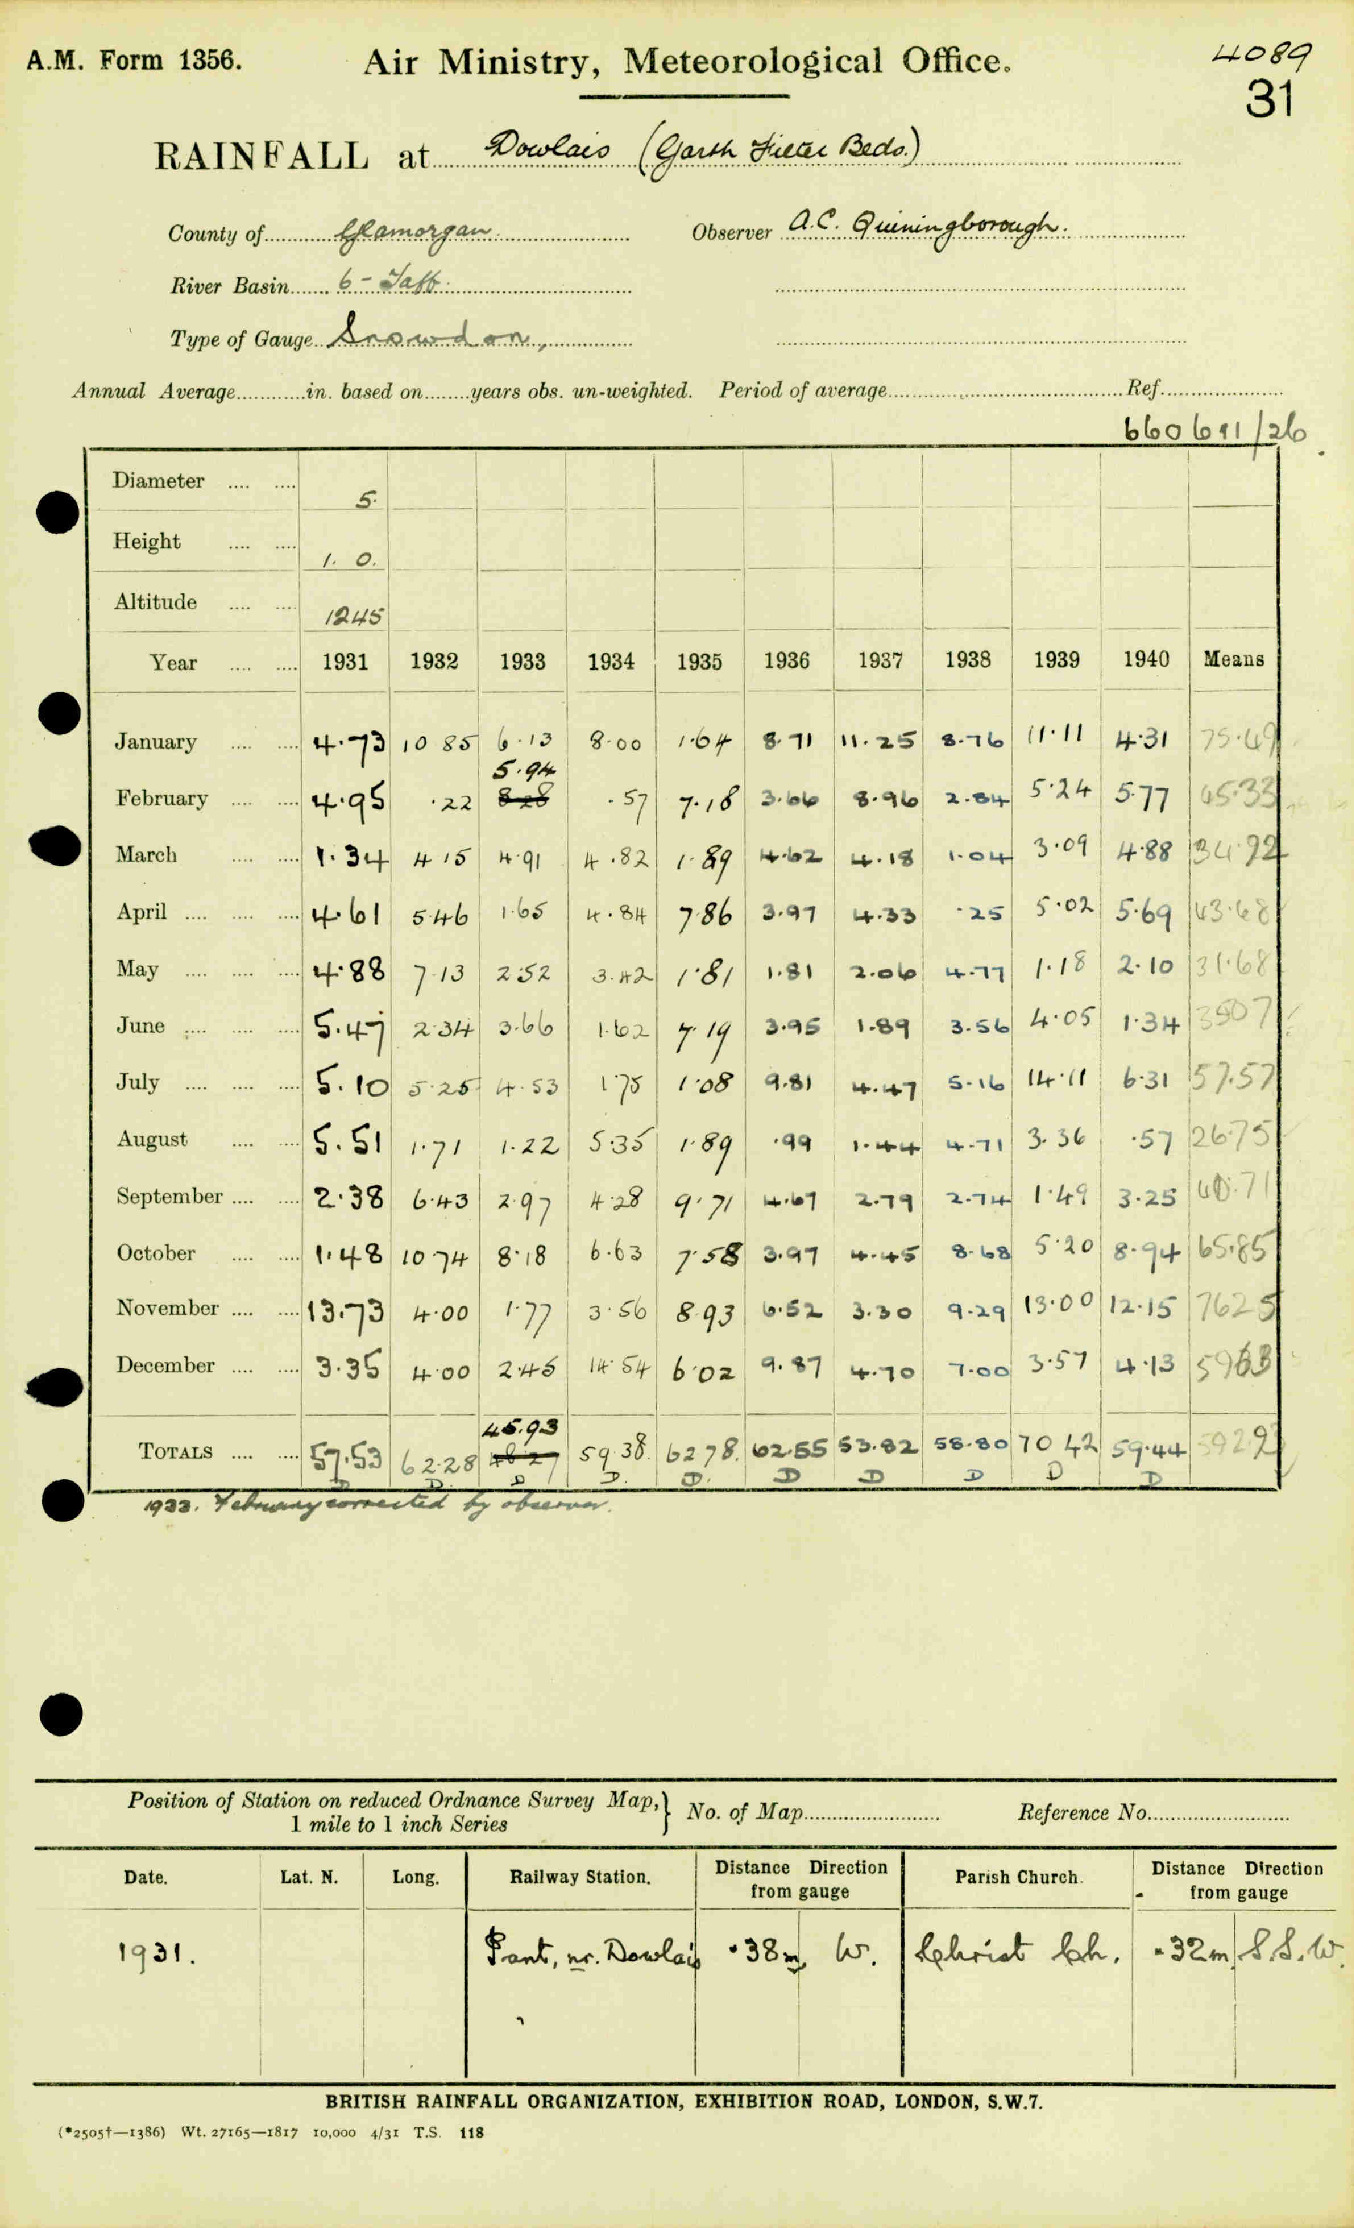 A.M. Form 1356.
Air Ministry, Meteorological Office.
4089
31
RAINFALL at Dowlais (Garth Filter Beds.)
County of Glamorgan. Observer A.C. Quiningborough.
River Basin 6 - Taff.
Type of Gauge Snowdon,
Annual Average in. based on years obs. un-weighted. Period of average Ref.
660611/26
Diameter 5.
Height 1. 0.
Altitude 1245
Year 1931 1932 1933 1934 1935 1936 1937 1938 1939 1940 Means
January 4.73 10 85 6.13 8.00 1.64 8.71 11.25 8.76 11.11 4.31 75.49
5.94
February 4.95 .22 8.28 .57 7.18 3.66 8.96 2.84 5.24 5.77 45.33
March 1.34 4 15 4.91 4.82 1.89 4.62 4.18 1.04 3.09 4.88 34.92
April 4.61 5.46 1.65 4.84 7.86 3.97 4.33 .25 5.02 5.69 43.68
May 4.88 7.13 2.52 3.42 1.81 1.81 2.06 4.77 1.18 2.10 31.68
June 5.47 2.34 3.66 1.62 7.19 3.95 1.89 3.56 4.05 1.34 3507
July 5.10 5.25 4.53 1.75 1.08 9.81 4.47 5.16 14.11 6.31 57.57
August 5.51 1.71 1.22 5.35 1.89 .99 1.44 4.71 3.36 .57 26.75
September 2.38 6.43 2.97 4.28 9.71 4.67 2.79 2.74 1.49 3.25 40.71
October 1.48 10 74 8.18 6.63 7.58 3.97 4.45 8.68 5.20 8.94 65.85
November 13.73 4.00 1.77 3.56 8.93 6.52 3.30 9.29 13.00 12.15 7625
December 3.35 4.00 2.45 14 54 6.02 9.87 4.70 7.00 3.57 4.13 5963
45.93
TOTALS 57.53 62.28 48 27 59.38. 62 78. 62.55 53.82 58.80 70 42 59.44 592.93
D D. D D. D. D D D D D
1933. February corrected by observer.
Position of Station on reduced Ordnance Survey Map,} No. of Map Reference No.
1 mile to 1 inch Series
Date. Lat. N. Long. Railway Station. Distance Direction Parish Church. Distance Direction
from gauge from gauge
1931. Pant, nr. Dowlais .38m W. Christ Ch. .32m. S.S.W.
BRITISH RAINFALL ORGANIZATION, EXHIBITION ROAD, LONDON, S.W.7.
(*2505†—1386) Wt. 27165—1817 10,000 4/31 T.S. 118